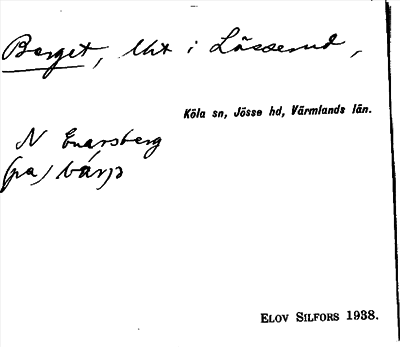 Berget, lht i Lässerud,
Köla sn, Jösse hd, Värmlands län.
N Enarsberg
(pa)
ELOV SILFORS 1938.